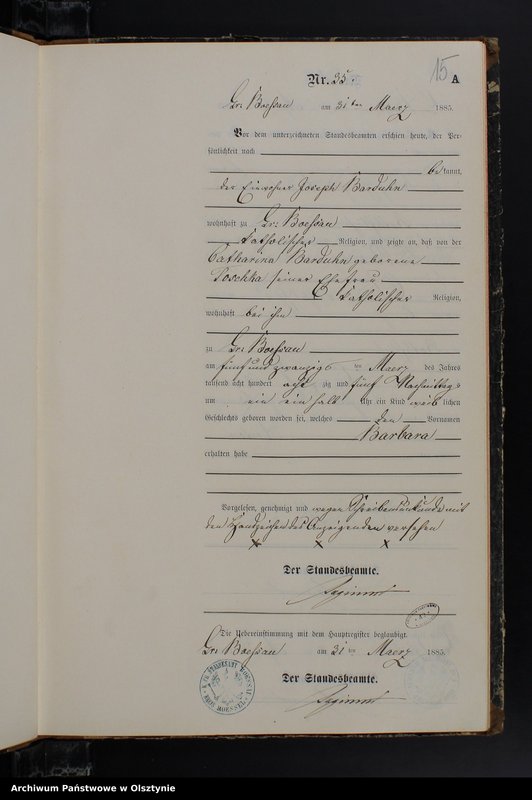 15
Nr. 35. A
Gr. Boessau am 31 ten Maerz 1885.
Vor dem unterzeichneten Standesbeamten erschien heute, der Per-
sönlichkeit nach
be kannt,
der Einwohner Joseph Barduhn
wohnhaft zu Gr. Boessau
katholischer Religion, und zeigte an, daß von der
Catharina Barduhn geborene
seiner Ehefrau
katholischer Religion,
wohnhaft bei ihm
zu Gr. Boessau
am fünf und zwanzigs ten Maerz des Jahres
tausend acht hundert acht zig und fünf Nachmittags
um ein ein halb Uhr ein Kind weib lichen
Geschlechts geboren worden sei, welches den Vornamen
Barbara
erhalten habe
Vorgelesen, genehmigt und wegen Schreibensunkunde mit
den Handzeichen des Anzeigenden versehen
x x x
Der Standesbeamte.
Die Uebereinstimmung mit dem Hauptregister beglaubigt
Gr. Boessau am 31 ten Maerz 1885.
Der Standesbeamte.
Archiwum Państwowe w Olsztynie